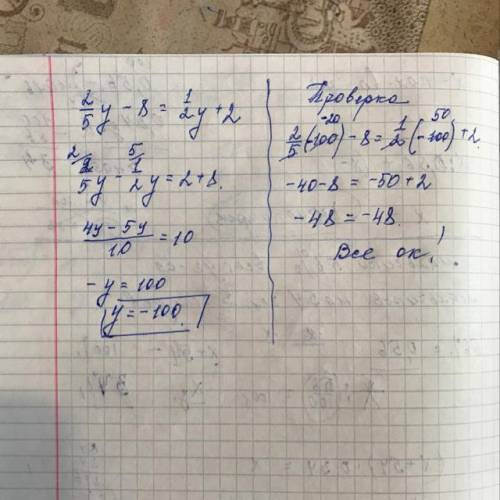 2/5 y - 8 = 1/2 y + 2
2/5 y - 1/2 y = 2 + 8.
(4y - 5y)/10 = 10
-y = 100
y = -100.
Проверка
2/5 (-100) - 8 = 1/2 (-100) + 2
-40 - 8 = -50 + 2
-48 = -48.
Все ок!